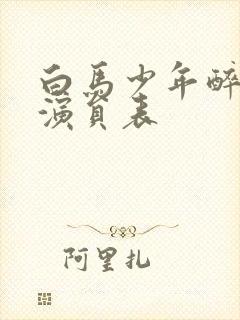 白马少年醉
演员表
阿里扎